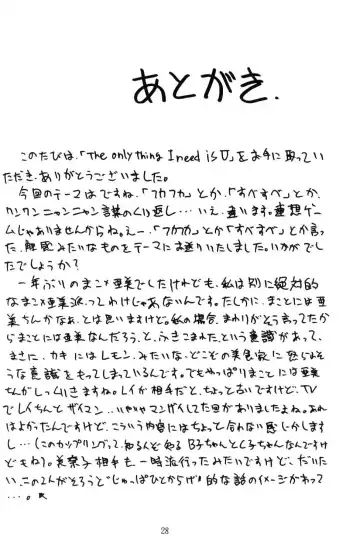 あとがき.
このたびは、「The only thing I need is U」をお手に取っていただき、ありがとうございました。
今回のテーマはですね、「フカフカ」とか、「すべすべ」とか、
ワンワンニャンニャン言葉のくり返し…いえ、違います。連想ゲー
ムじゃありませんからね。えー、「フカフカ」とか「すべすべ」とか言っ
た、触感みたいなものをテーマにお送りいたしました。いかがでし
たでしょうか？
一年ぶりのまこ×亜美でしたけれども、私は別に絶対的
なまこ×亜美派ってわけじゃあないんです。たしかに、まことには亜
美ちゃんかなぁ、とは思いますけど。私の場合、まわりがそう言ってたか
らまことには亜美なんだろう、と、ふきこまれたという意識があって、
まさに、カキにはレモン、みたいな、どこぞの美食家に怒られそ
うな意識をもってしまっているんです。でもやっぱりまことには亜美
ちがしっくりきますね。レイが相手だと、ちょっと古いですけど、TV
でレイちんとザイコン…いやいやマンザイしてた回がありましたよね。あれ
はよかったんですけど、こういう内容にはちょっと合わない感じがしま
し…(このカップリングって、知る人ぞ知るB子ちゃんとC子ちゃんなんですけ
どもね)。美奈子相手も一時流行ったみたいですけど、だいた
い、この2人がそろうと“じゅっぱひとからげ”的な話のイメージがあって
…。
28